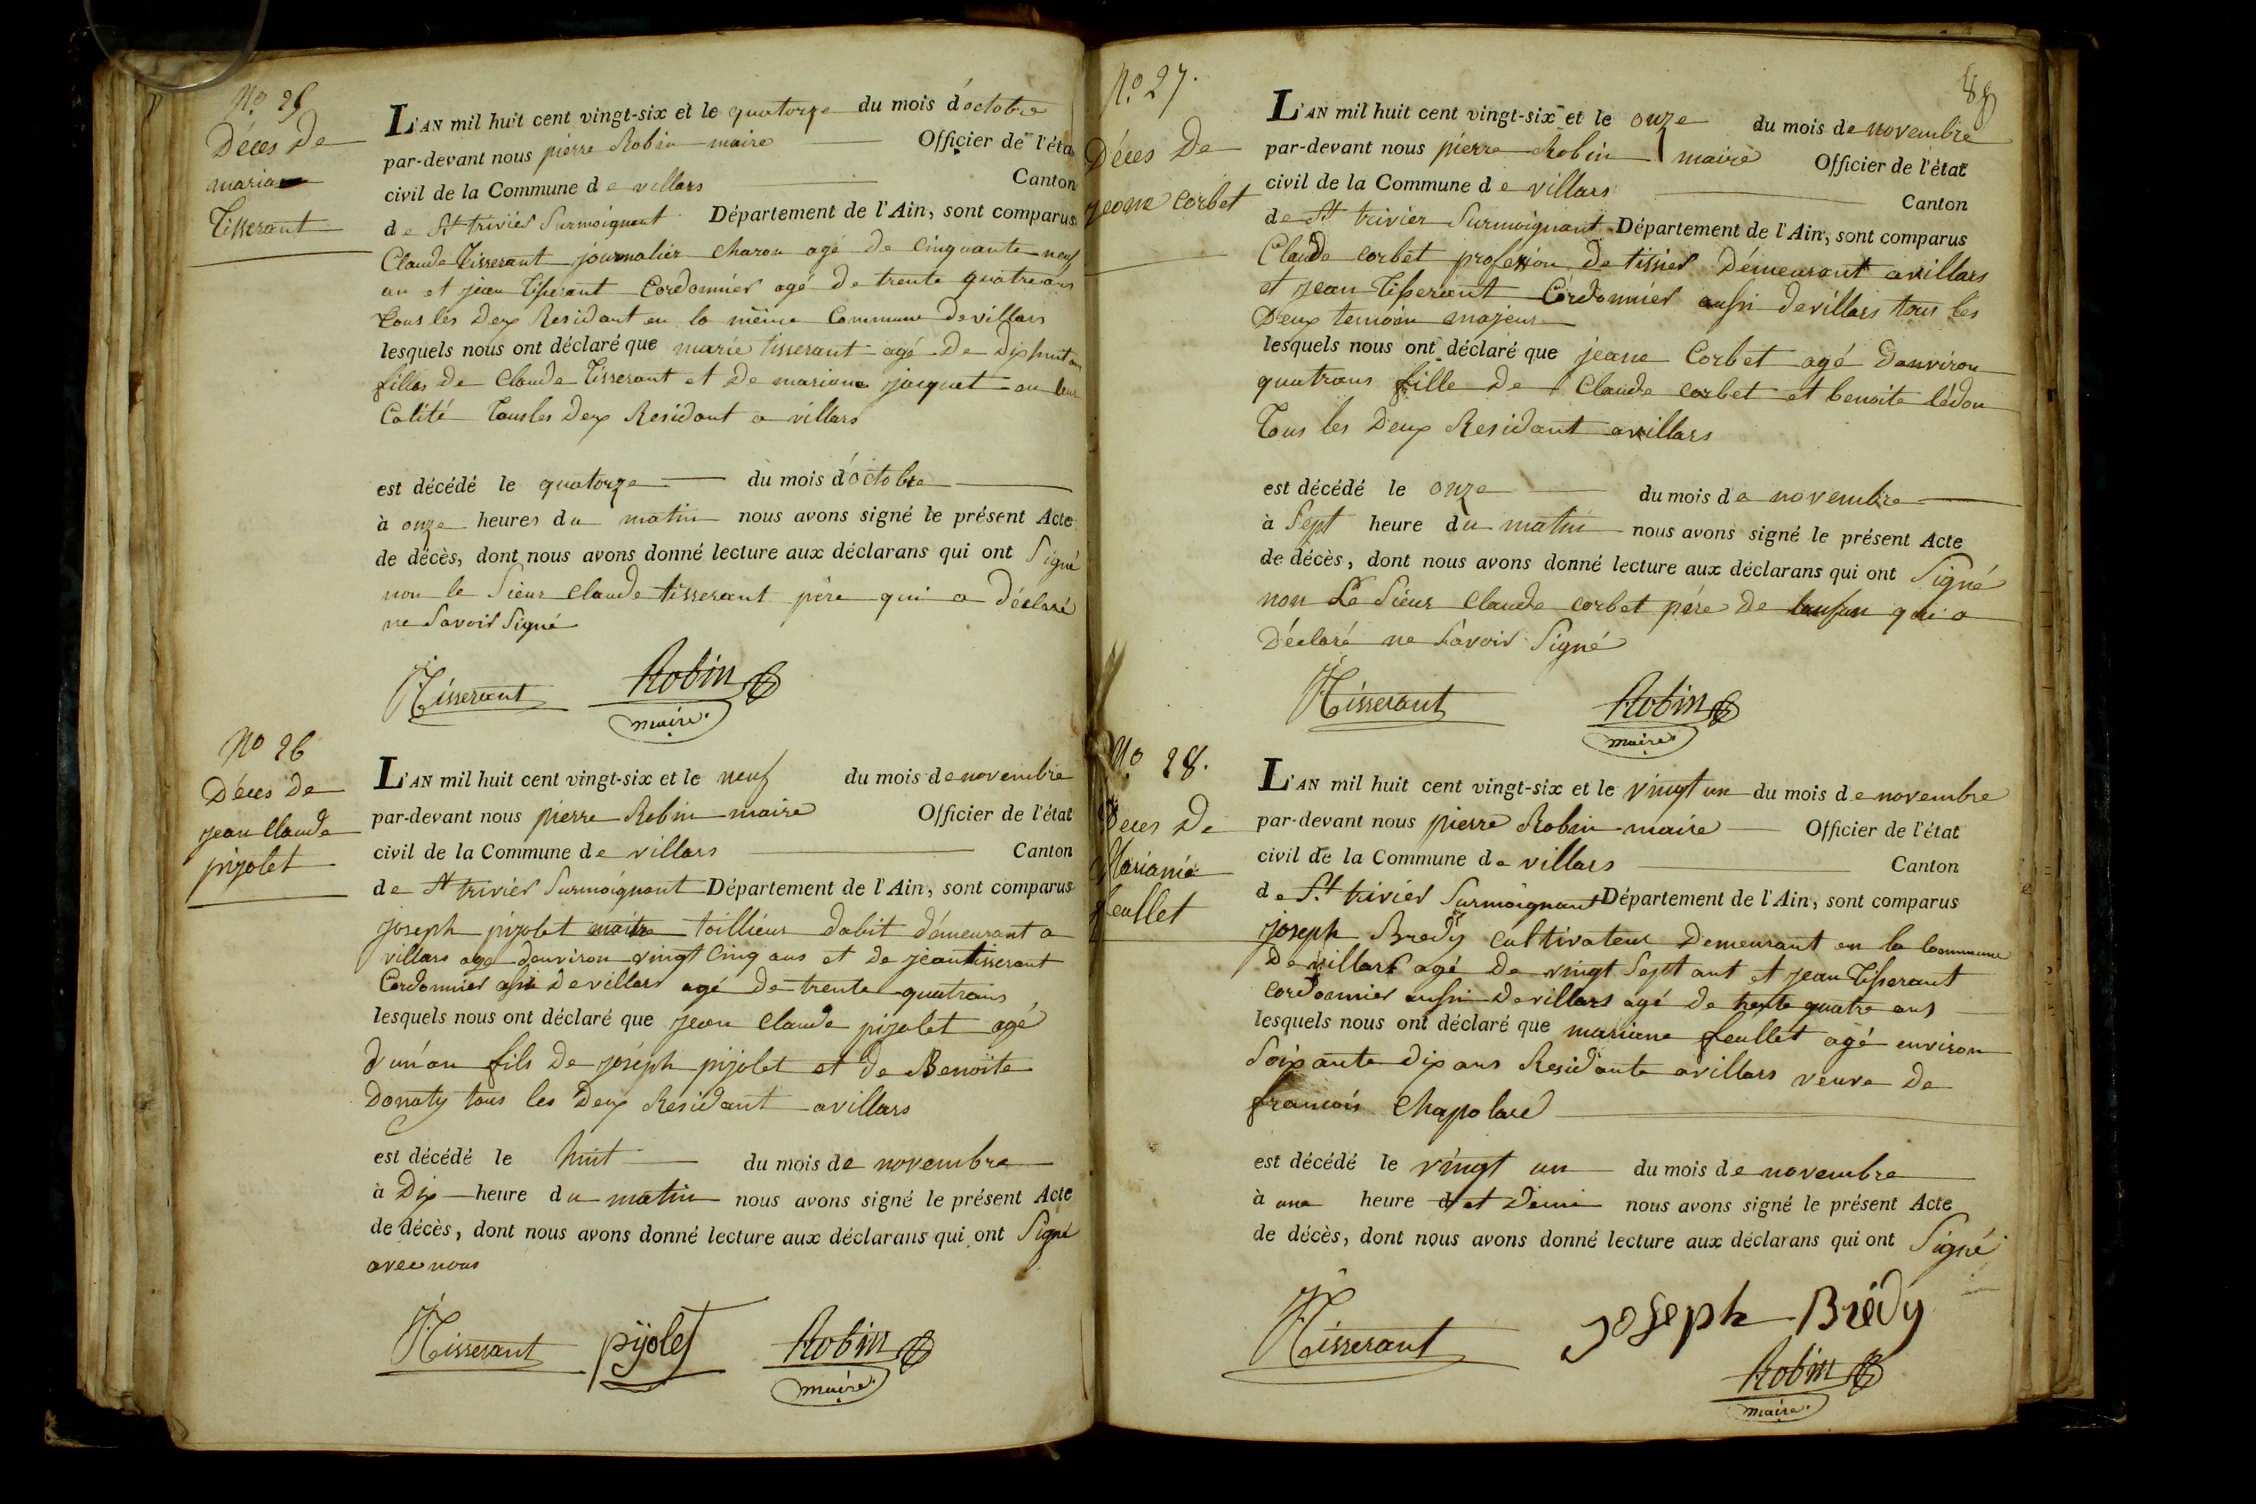 No 25
Déces De
marie
Tisserant
L'AN mil huit cent vingt-six et le quatorze du mois d'octobre
par-devant nous pierre Robin maire Officier de l'éta
civil de la Commune de villars Canton
de St trivier Surmoignant Département de l'Ain, sont comparus
Claude Tisserant journalier charon agé de Cinquante neuf
an et jean Tisserant Cordonnier agé De trente quatre ans
tous les Deux Residant en la même Commune De villars
lesquels nous ont déclaré que marie tisserant agé De Dix huit an
filles de Claude Tisserant et De mariane jacquet en leur
Calité Tous les Deux Residant a villars
est décédé le quatorze du mois d'octobre
à onze heures du matin nous avons signé le présent Acte
de décès, dont nous avons donné lecture aux déclarans qui ont Signé
non le Sieur Claude tisserant père qui a Déclaré
ne Savoir Signé
Tisserant Robin
maire
No 26
Déces De
jean Claude
pijolet
L'AN mil huit cent vingt-six et le neuf du mois de novembre
par-devant nous pierre Robin maire Officier de l'état
civil de la Commune de villars Canton
de St trivier Surmoignant Département de l'Ain, sont comparus
joseph pijolet maitre taillieur dabit démeurant a
villars age denviron vingt Cinq ans et de jean tisserant
Cordonnier De villars agé De trente quatrans
lesquels nous ont déclaré que jean Claude pijolet agé
d'un an fils De joséph pijolet et de Benoite
Donaty tous les Deux Residant a villars
est décédé le huit du mois de novembre
à Dix heure du matin nous avons signé le présent Acte
de décès, dont nous avons donné lecture aux déclarans qui ont Signé
avec nous
Tisserant pijolet Robin
maire
88
No 27.
Déces De
jeane Corbet
L'AN mil huit cent vingt-six et le onze du mois de novembre
par-devant nous pierre Robin maire Officier de l'état
civil de la Commune de villars Canton
de St trivier Surmoignant Département de l'Ain, sont comparus
Claude corbet profession De tissier Démeurant a villars
et jean Tisserant Cordonnier aussi de villars tous les
Deux temoin majeur
lesquels nous ont déclaré que jeane Corbet agé Danviron
quatrans fille De Claude corbet et benoite lédon
Tous les Deux Residant a villars
est décédé le onze du mois de novembre
à Sept heure du matin nous avons signé le présent Acte
de décès, dont nous avons donné lecture aux déclarans qui ont Signé
non Le Sieur Claude corbet pére De qui a
Déclaré ne Savoir Signé
Tisserant Robin
maire
No 28.
Déces De
Mariane
feullet
L'AN mil huit cent vingt-six et le vingt un du mois de novembre
par-devant nous pierre Robin maire Officier de l'état
civil de la Commune de villars Canton
de St trivier Surmoignant Département de l'Ain, sont comparus
joseph Bredy Cultivateur Demeurant en la Commune
De villars agé De vingt Sept ant et jean Tisserant
cordonnier aussi De villars agé de trente quatre ans
lesquels nous ont déclaré que mariane feullet agé environ
Soixante dix ans Residante a villars veuve De
francois Chapolard
est décédé le vingt un du mois de novembre
à une heure d et Demi nous avons signé le présent Acte
de décès, dont nous avons donné lecture aux déclarans qui ont Signé
Tisserant joseph Brédy
Robin
maire